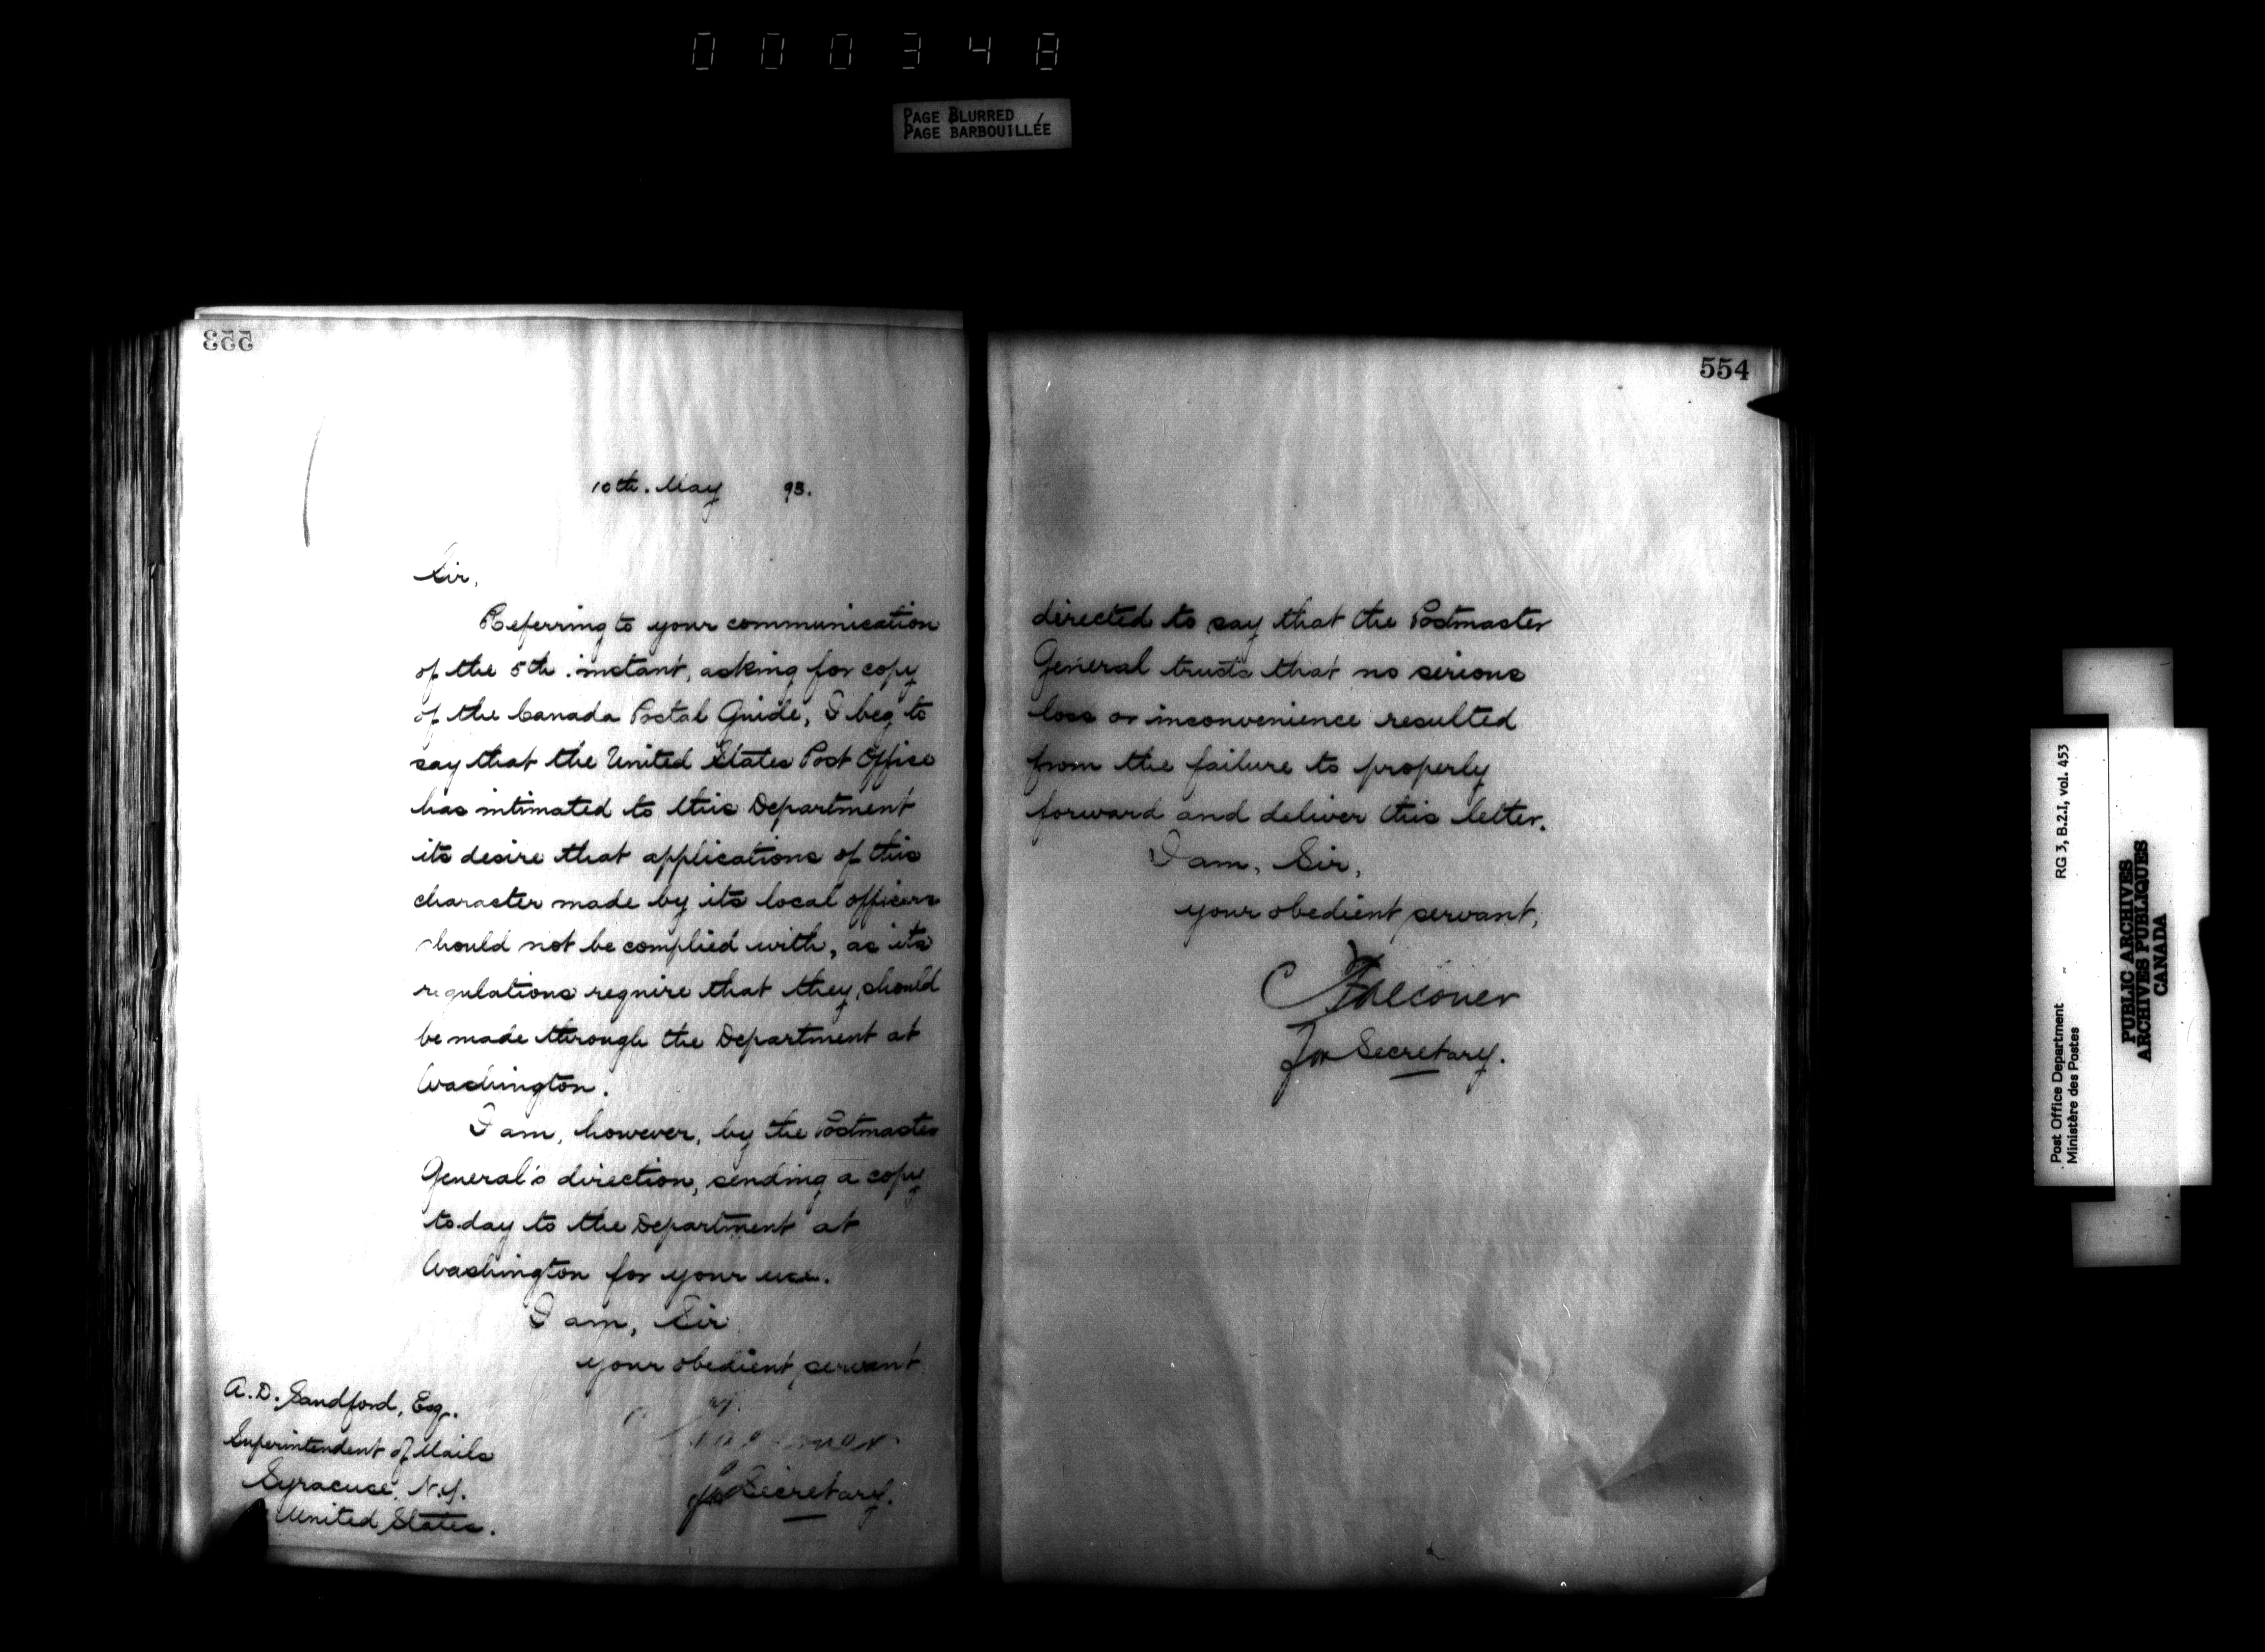 000348
PAGE BLURRED
PAGE BARBOUILLÉE
553
10th. May 93.
Sir,
Referring to your communication
of the 5th. instant, asking for copy
of the Canada Postal Guide, I beg to
say that the United States Post Office
has intimated to this Department
its desire that applications of this
character made by its local officers
should not be complied with, as its
regulations require that they should
be made through the Department at
Washington.
I am, however, by the Postmaster
General's direction, sending a copy
to-day to the Department at
Washington for your use.
I am, Sir
your obedient servant
for Secretary.
A. D. Sandford, Esq.
Superintendent of Mails
Syracuse, N.Y.
United States.
554
directed to say that the Postmaster
General trusts that no serious
loss or inconvenience resulted
from the failure to properly
forward and deliver this letter.
I am, Sir,
your obedient servant,
C Falconer
for Secretary.
Post Office Department RG 3, B.2.I, vol. 453
Ministère des Postes
PUBLIC ARCHIVES
ARCHIVES PUBLIQUES
CANADA